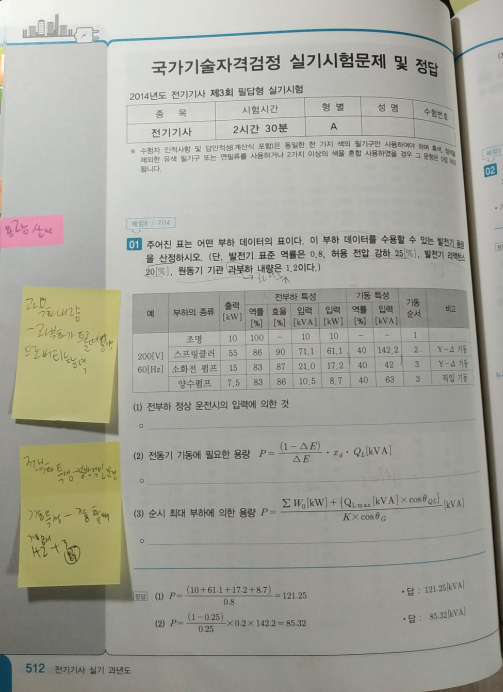 국가기술자격검정 실기시험문제 및 정답
2014년도 전기기사 제3회 필답형 실기시험
종 목 시험시간 형 별 성 명 수험번호
전기기사 2시간 30분 A
※ 수험자 인적사항 및 답안작성(계산식 포함)은 동일한 한 가지 색의 필기구만 사용하여야 하며 흑색,
제외한 유색 필기구 또는 연필류를 사용하거나 2가지 이상의 색을 혼합 사용하였을 경우 그 문항은 0점 처리
됩니다.
배점8 / 기14
01 주어진 표는 어떤 부하 데이터의 표이다. 이 부하 데이터를 수용할 수 있는 발전기 용량
을 산정하시오. (단, 발전기 표준 역률은 0.8, 허용 전압 강하 25[%], 발전기 리액턴스
20[%], 원동기 기관 과부하 내량은 1.2이다.)
예 부하의 종류 출력[kW] 전부하 특성 기동 특성 기동순서 비고
역률[%] 효율[%] 입력[kVA] 입력[kW] 역률[%] 입력[kVA]
200[V] 60[Hz]
조명 10 100 – 10 10 – – 1
스프링클러 55 86 90 71.1 61.1 40 142.2 2 Y-Δ 기동
소화전 펌프 15 83 87 21.0 17.2 40 42 3 Y-Δ 기동
양수펌프 7.5 83 86 10.5 8.7 40 63 3 직입 기동
(1) 전부하 정상 운전시의 입력에 의한 것
(2) 전동기 기동에 필요한 용량 P = (1-ΔE)/ΔE · x_d · Q_L[kVA]
(3) 순시 최대 부하에 의한 용량 P = (∑W_0[kW] + {Q_Lmax[kVA] × cosθ_QL})/(K × cosθ_G) [kVA]
정답 (1) P = (10+61.1+17.2+8.7)/0.8 = 121.25 • 답 : 121.25[kVA]
(2) P = (1-0.25)/0.25 × 0.2 × 142.2 = 85.32 • 답 : 85.32[kVA]
512 전기기사 실기 과년도
02